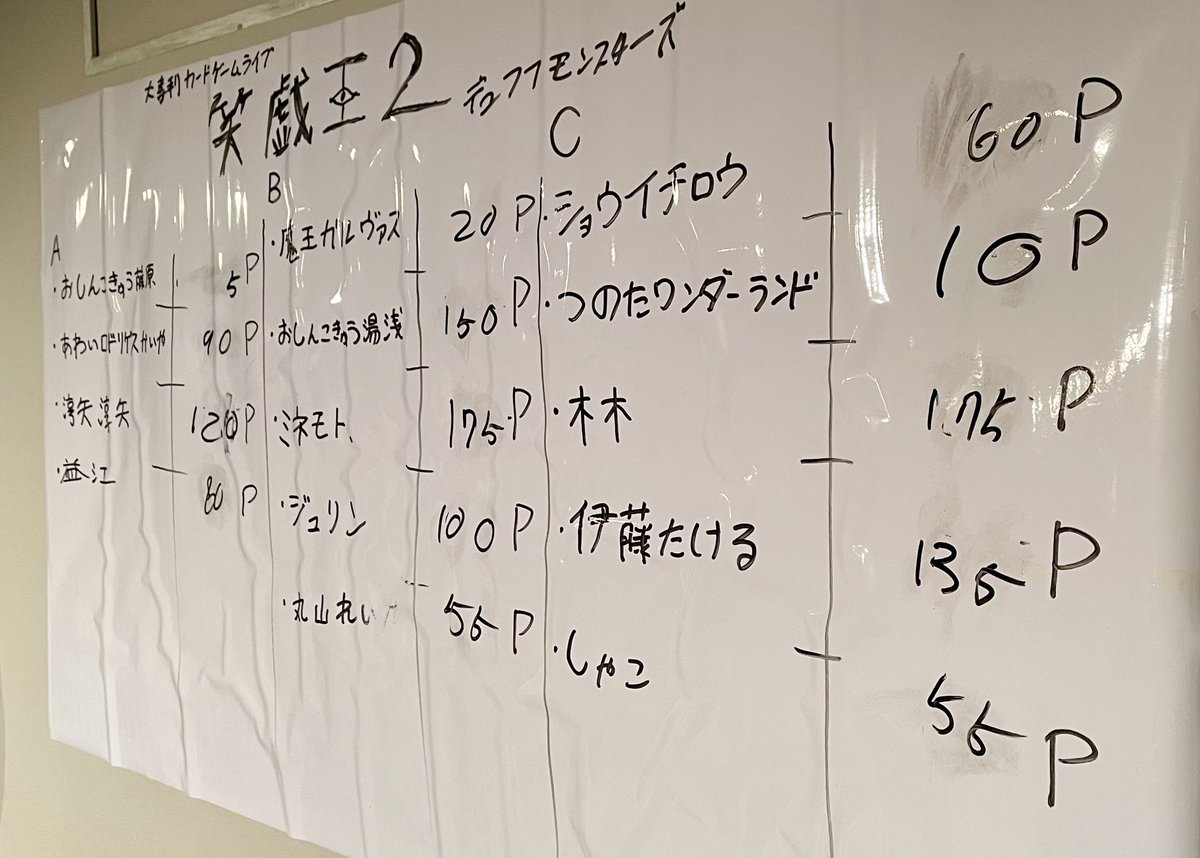 大喜利カードゲームライブ
笑戯王2 デュフフモンスターズ
A
・おしんこきゅう藤原 5P
・あわいロドリゲスかいや 90P
・淳矢淳矢 120P
・益江 80P
B
・魔王ガルヴァス 20P
・おしんこきゅう湯浅 150P
・ミネモト 175P
・ジュリン 100P
・丸山れい 55P
C
・ショウイチロウ 60P
・つのたワンダーランド 10P
・木木 175P
・伊藤たける 135P
・しゃこ 55P